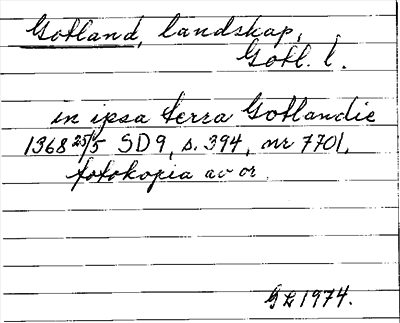 Gotland, landskap,
Gotl. l.
in ipsa terra Gotlandie
1368 25/5 SD9, s. 394, nr 7701,
fotokopia av or.
GL 1974.